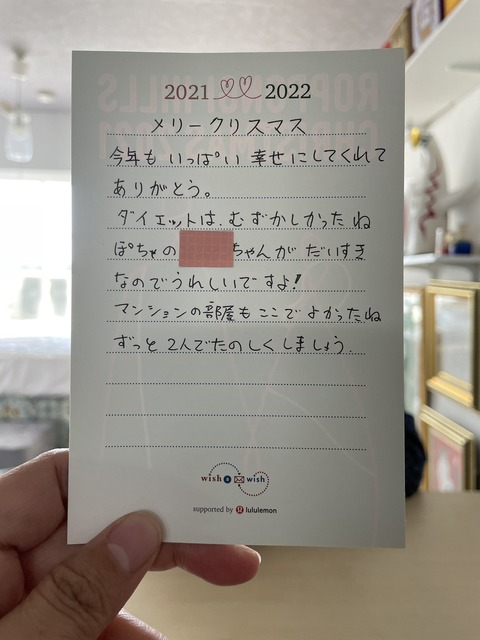 2021 2022
メリークリスマス
今年も いっぱい 幸せにしてくれて
ありがとう。
ダイエットは、むずかしかったね
ぽちゃの ちゃんが だいすき
なのでうれしいですよ!
マンションの部屋も ここで よかったね
ずっと 2人でたのしくしましょう。
wish a wish
supported by lululemon